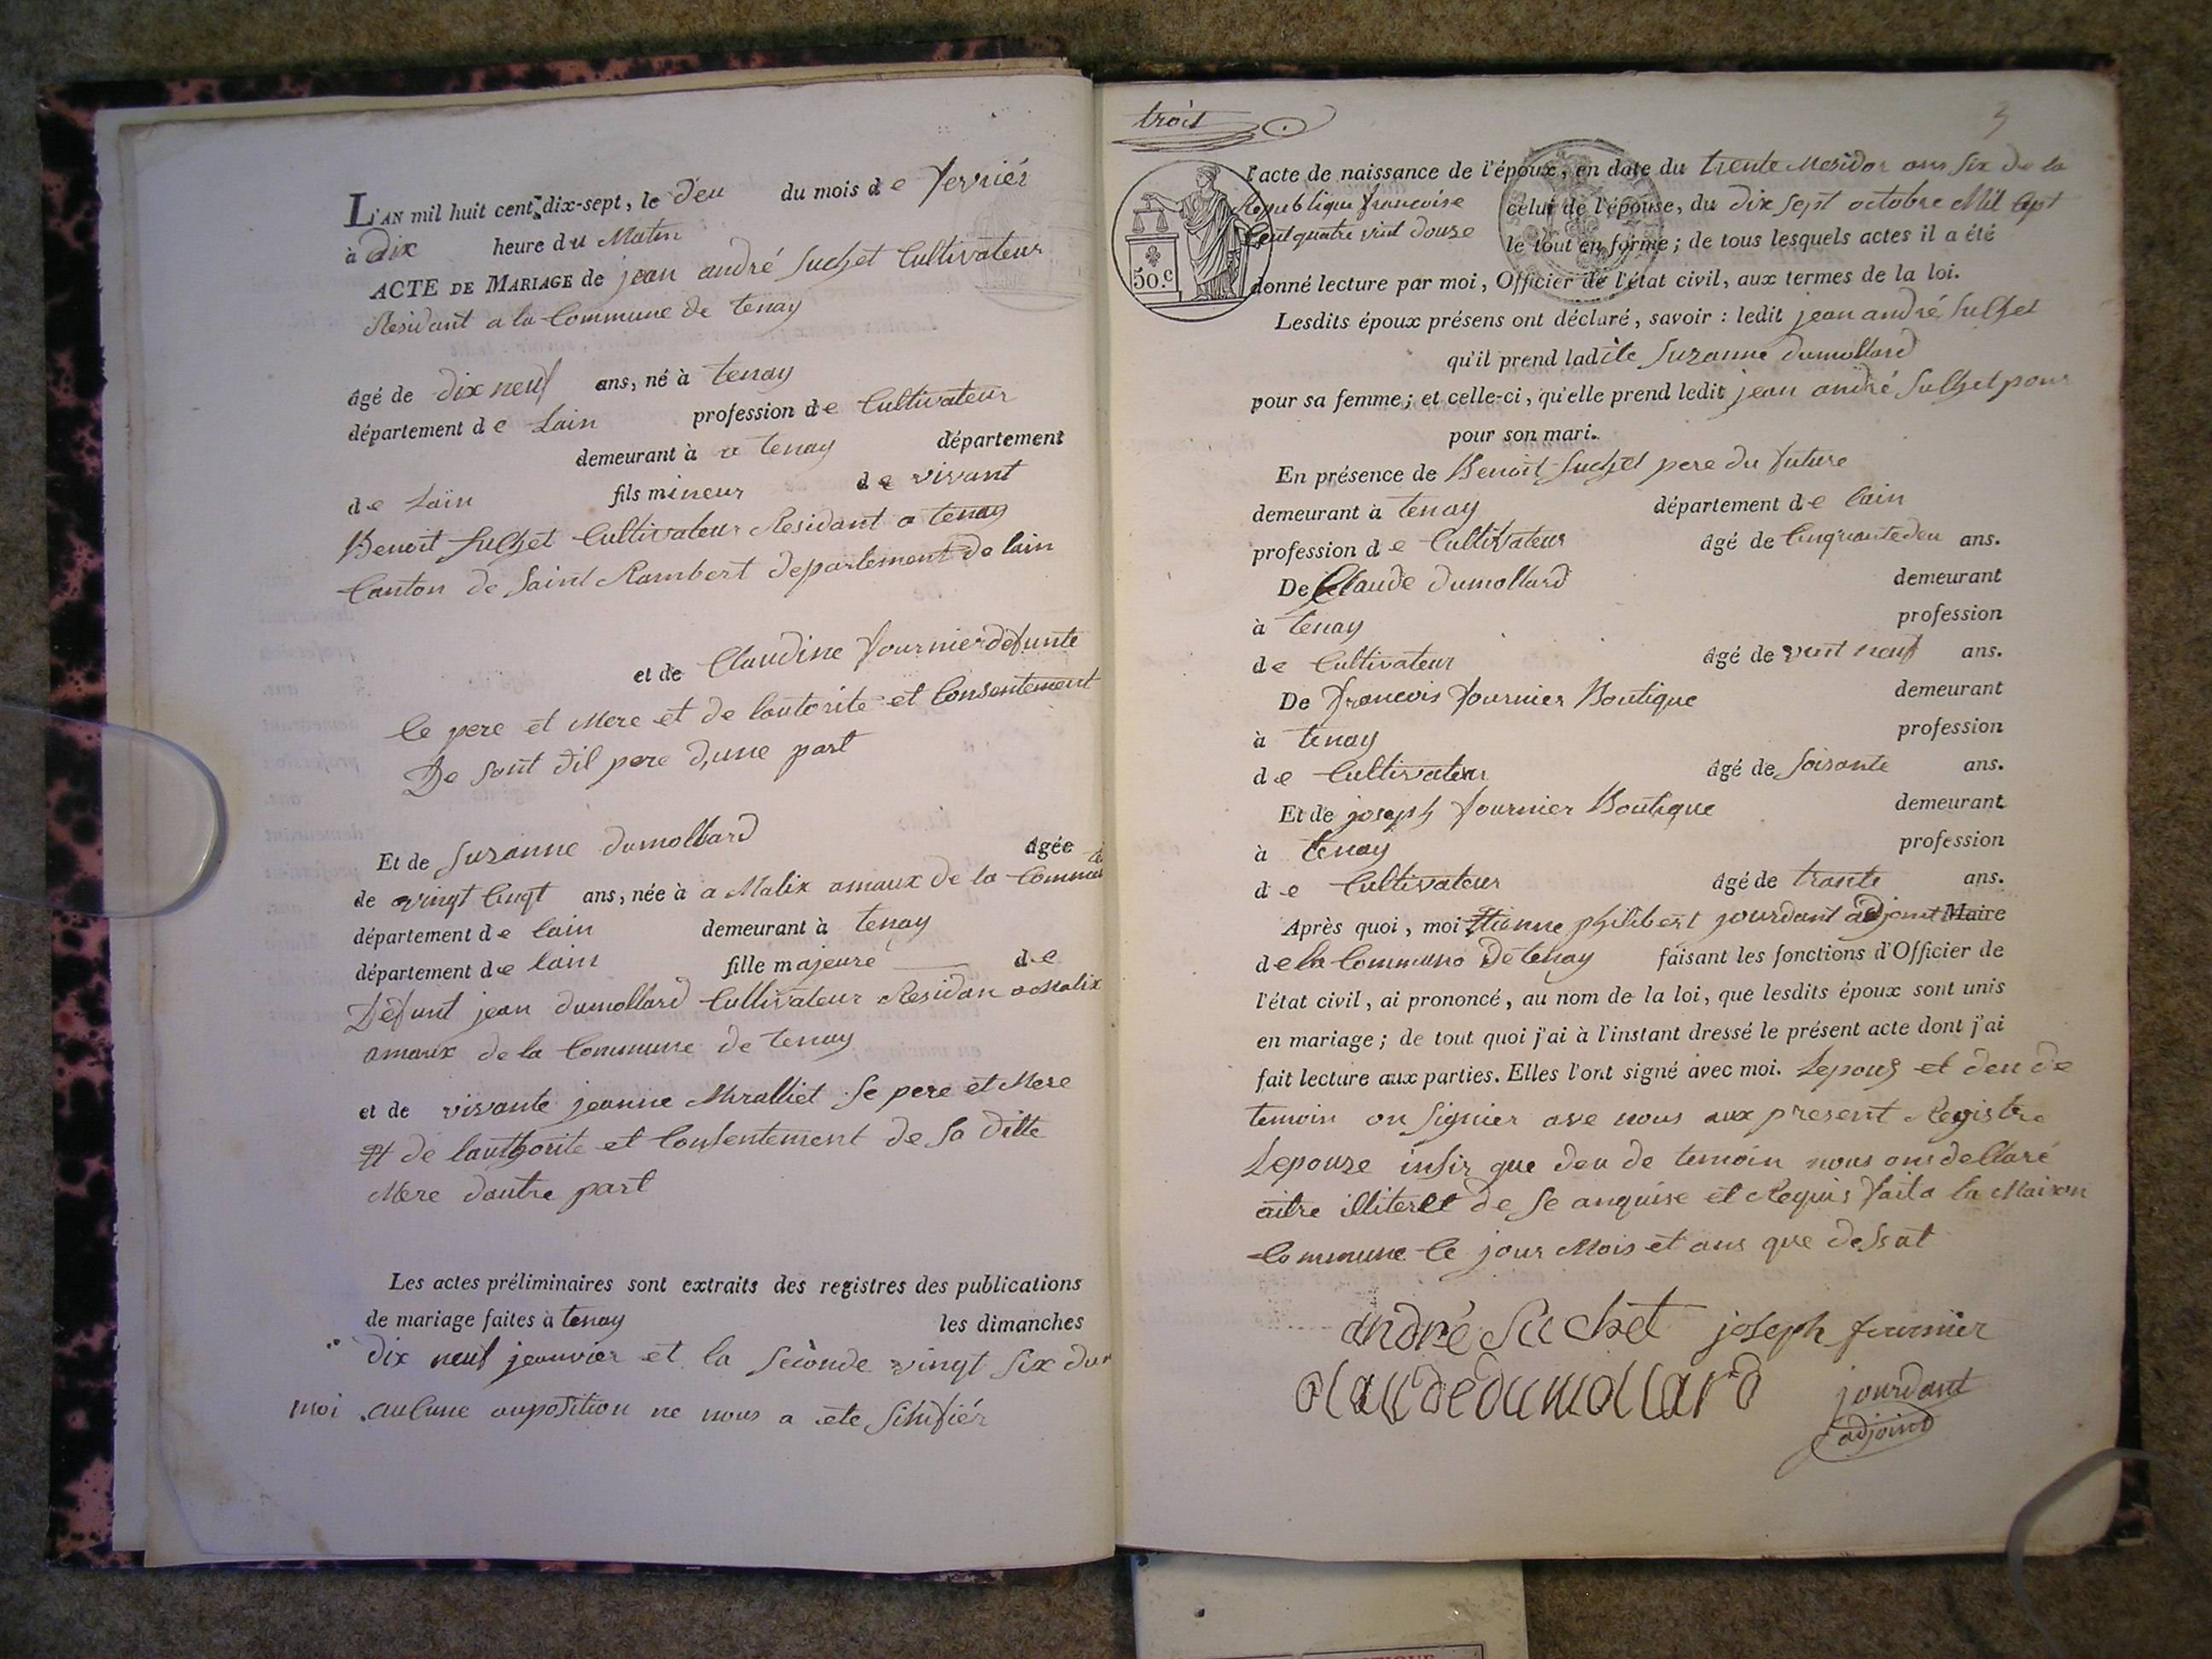 L'AN mil huit cent dix-sept, le deu du mois de fevriér
à dix heure du Matin
ACTE DE MARIAGE de jean andré Suchet Cultivateur
Residant a la Commune de tenay
âgé de dix neuf ans, né à tenay
département de Lain profession de Cultivateur
demeurant à a tenay département
de Lain fils mineur de vivant
Benoit Suchet Cultivateur Residant a tenay
Canton de Saint Rambert departement de lain
et de Claudine fournier defunte
Ce pere et Mere et de lautorite et Consentement
De sont dil pere d,une part
Et de Suzanne dumollard âgée
de vingt Cinqt ans, née à a Malix amaux de la Commune
département de lain demeurant à tenay
département de lain fille majeure de
Défunt jean dumollard Cultivateur Residan a Malix
amaux de la Commune de tenay
et de vivante jeanne Miralliet Se pere et Mere
et de lauthorite et Consentement de Sa ditte
Mere dautre part
Les actes préliminaires sont extraits des registres des publications
de mariage faites à tenay les dimanches
dix neuf jeanvier et la Seconde vingt Six du
moi .auCune auposition ne nous a ete Sinifiér
trois
3
l'acte de naissance de l'époux, en date du trente Mesidor ans Six de la
Republique francoise celui de l'épouse, du dix Sept octobre Mil Sept
Cent quatre vint douze le tout en forme; de tous lesquels actes il a été
50.c
donné lecture par moi, Officier de l'état civil, aux termes de la loi.
Lesdits époux présens ont déclaré, savoir : ledit jean andré Suchet
qu'il prend ladite Suzanne dumollard
pour sa femme; et celle-ci, qu'elle prend ledit jean andré Suchet pour
pour son mari.
En présence de Benoit Suchet pere du future
demeurant à tenay département de lain
profession de Cultivateur âgé de Cinquantedeu ans.
De Claude dumollard demeurant
à tenay profession
de Cultivateur âgé de vint neuf ans.
De francois fournier Boutique demeurant
à tenay profession
de Cultivateur âgé de Soisante ans.
Et de joseph fournier Boutique demeurant
à tenay profession
de Cultivateur âgé de trante ans.
Après quoi, moi Etienne philibert jourdant adjoint Maire
de la Commune De tenay faisant les fonctions d'Officier de
l'état civil, ai prononcé, au nom de la loi, que lesdits époux sont unis
en mariage; de tout quoi j'ai à l'instant dressé le présent acte dont j'ai
fait lecture aux parties. Elles l'ont signé avec moi. Lepoux et deu de
temoin on Signier ave nous aux present Registre
Lepouze insir que deu de temoin nous ons dellaré
aitre illiteret de Se anquise et Requis fait a la Maison
Commune le jour Mois et ans que dessat
andré Suchet joseph fournier
claude dumollard jourdant
adjoint